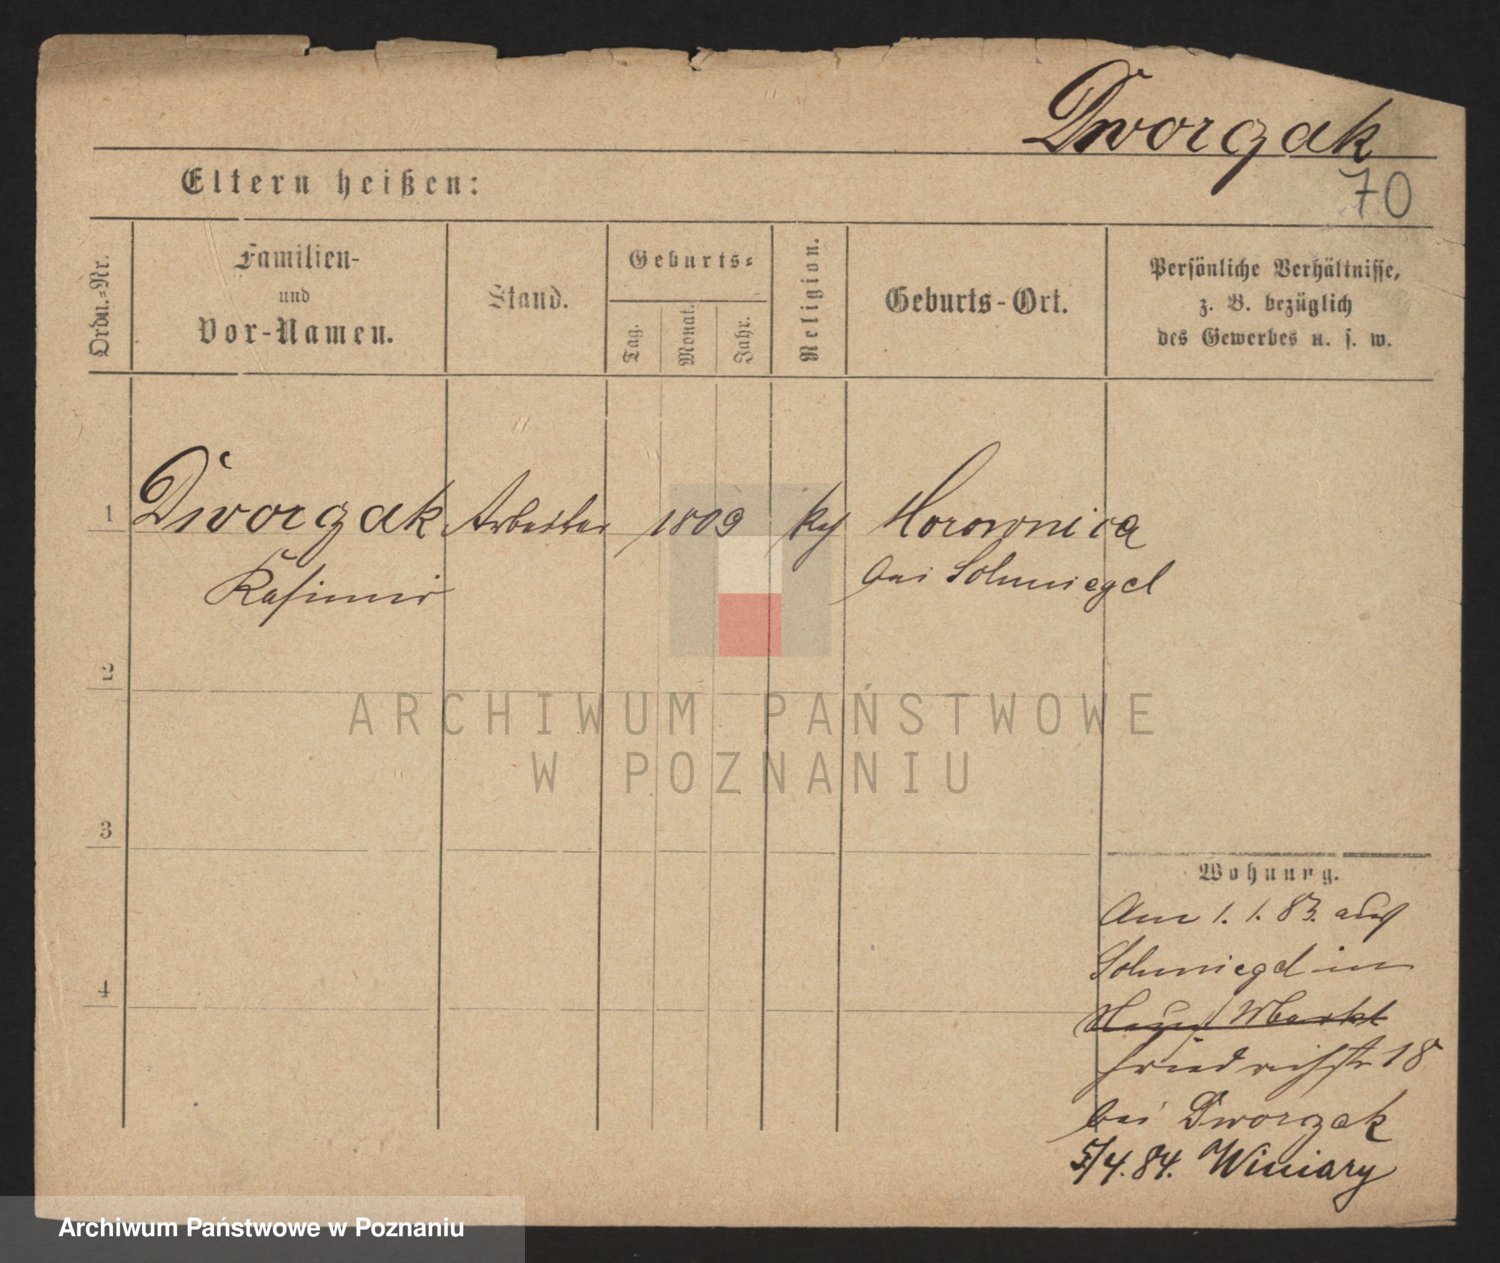 Dworzak
70
Eltern heißen:
Ordn.-Nr.
Familien-
und
Vor-Namen.
Stand.
Geburts-
Tag.
Monat.
Jahr.
Religion.
Geburts-Ort.
Persönliche Verhältnisse,
z. B. bezüglich
des Gewerbes u. s. w.
1
Dworzak Arbeiter 1809 Morownica
Kasimir bei Schmiegel
2
ARCHIWUM PAŃSTWOWE
W POZNANIU
3
Wohnung.
Am 1.1.83. aus
Schmiegel in
4
Markt
Friedrichstr 18
bei Dworzak
5/4.84. Winiary
Archiwum Państwowe w Poznaniu